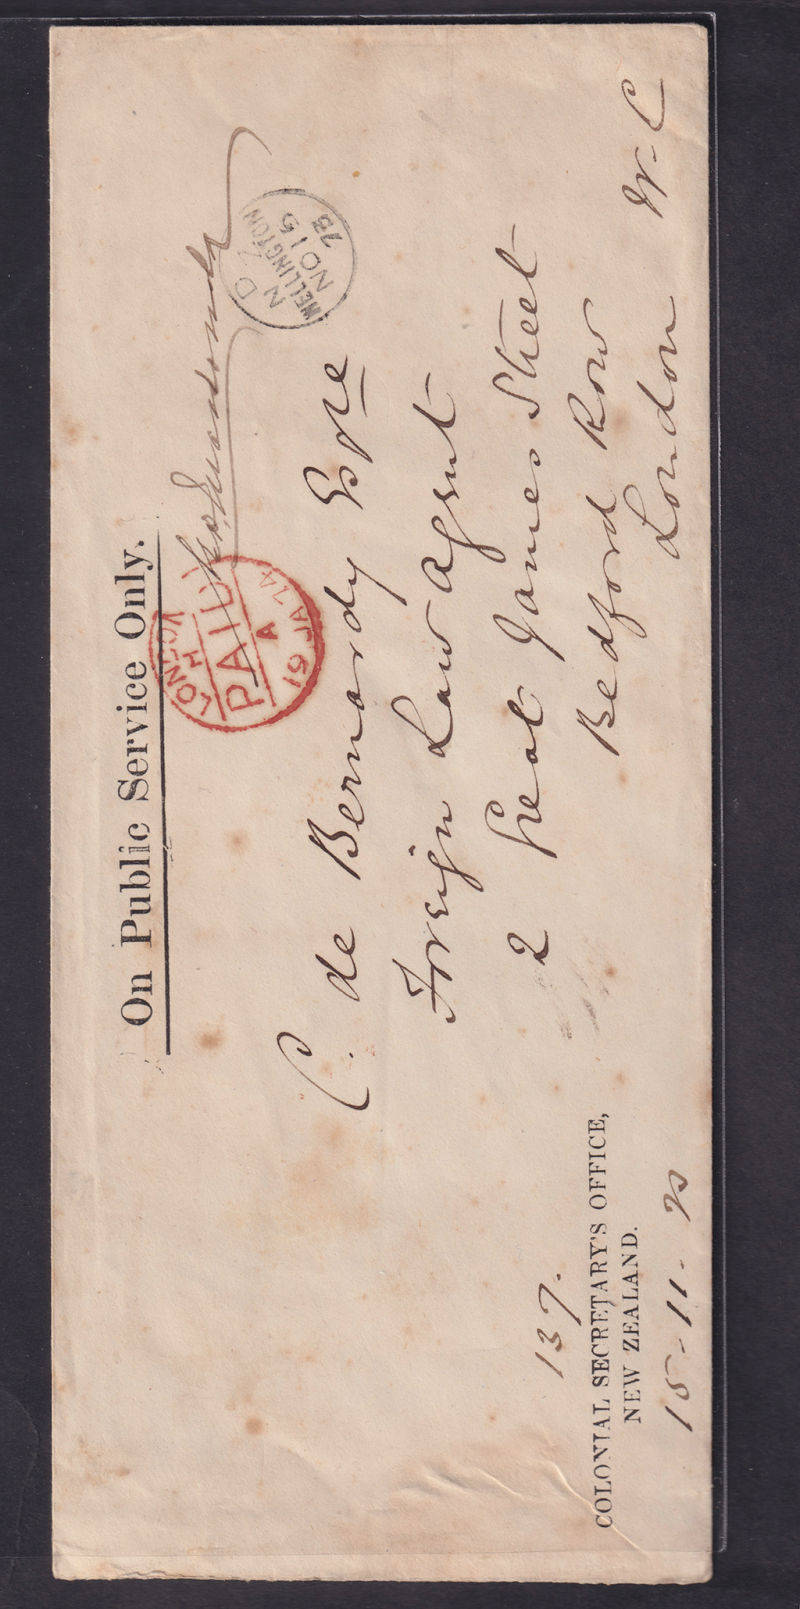 On Public Service Only.
LONDON
H
PAID
A
19 JA 74
N Z
WELLINGTON
NO 15
73
D
C. de Bernardy Esqre
Foreign Law Agent
2 Great James Street
Bedford Row
London W.C
137.
COLONIAL SECRETARY'S OFFICE,
NEW ZEALAND.
15-11-73